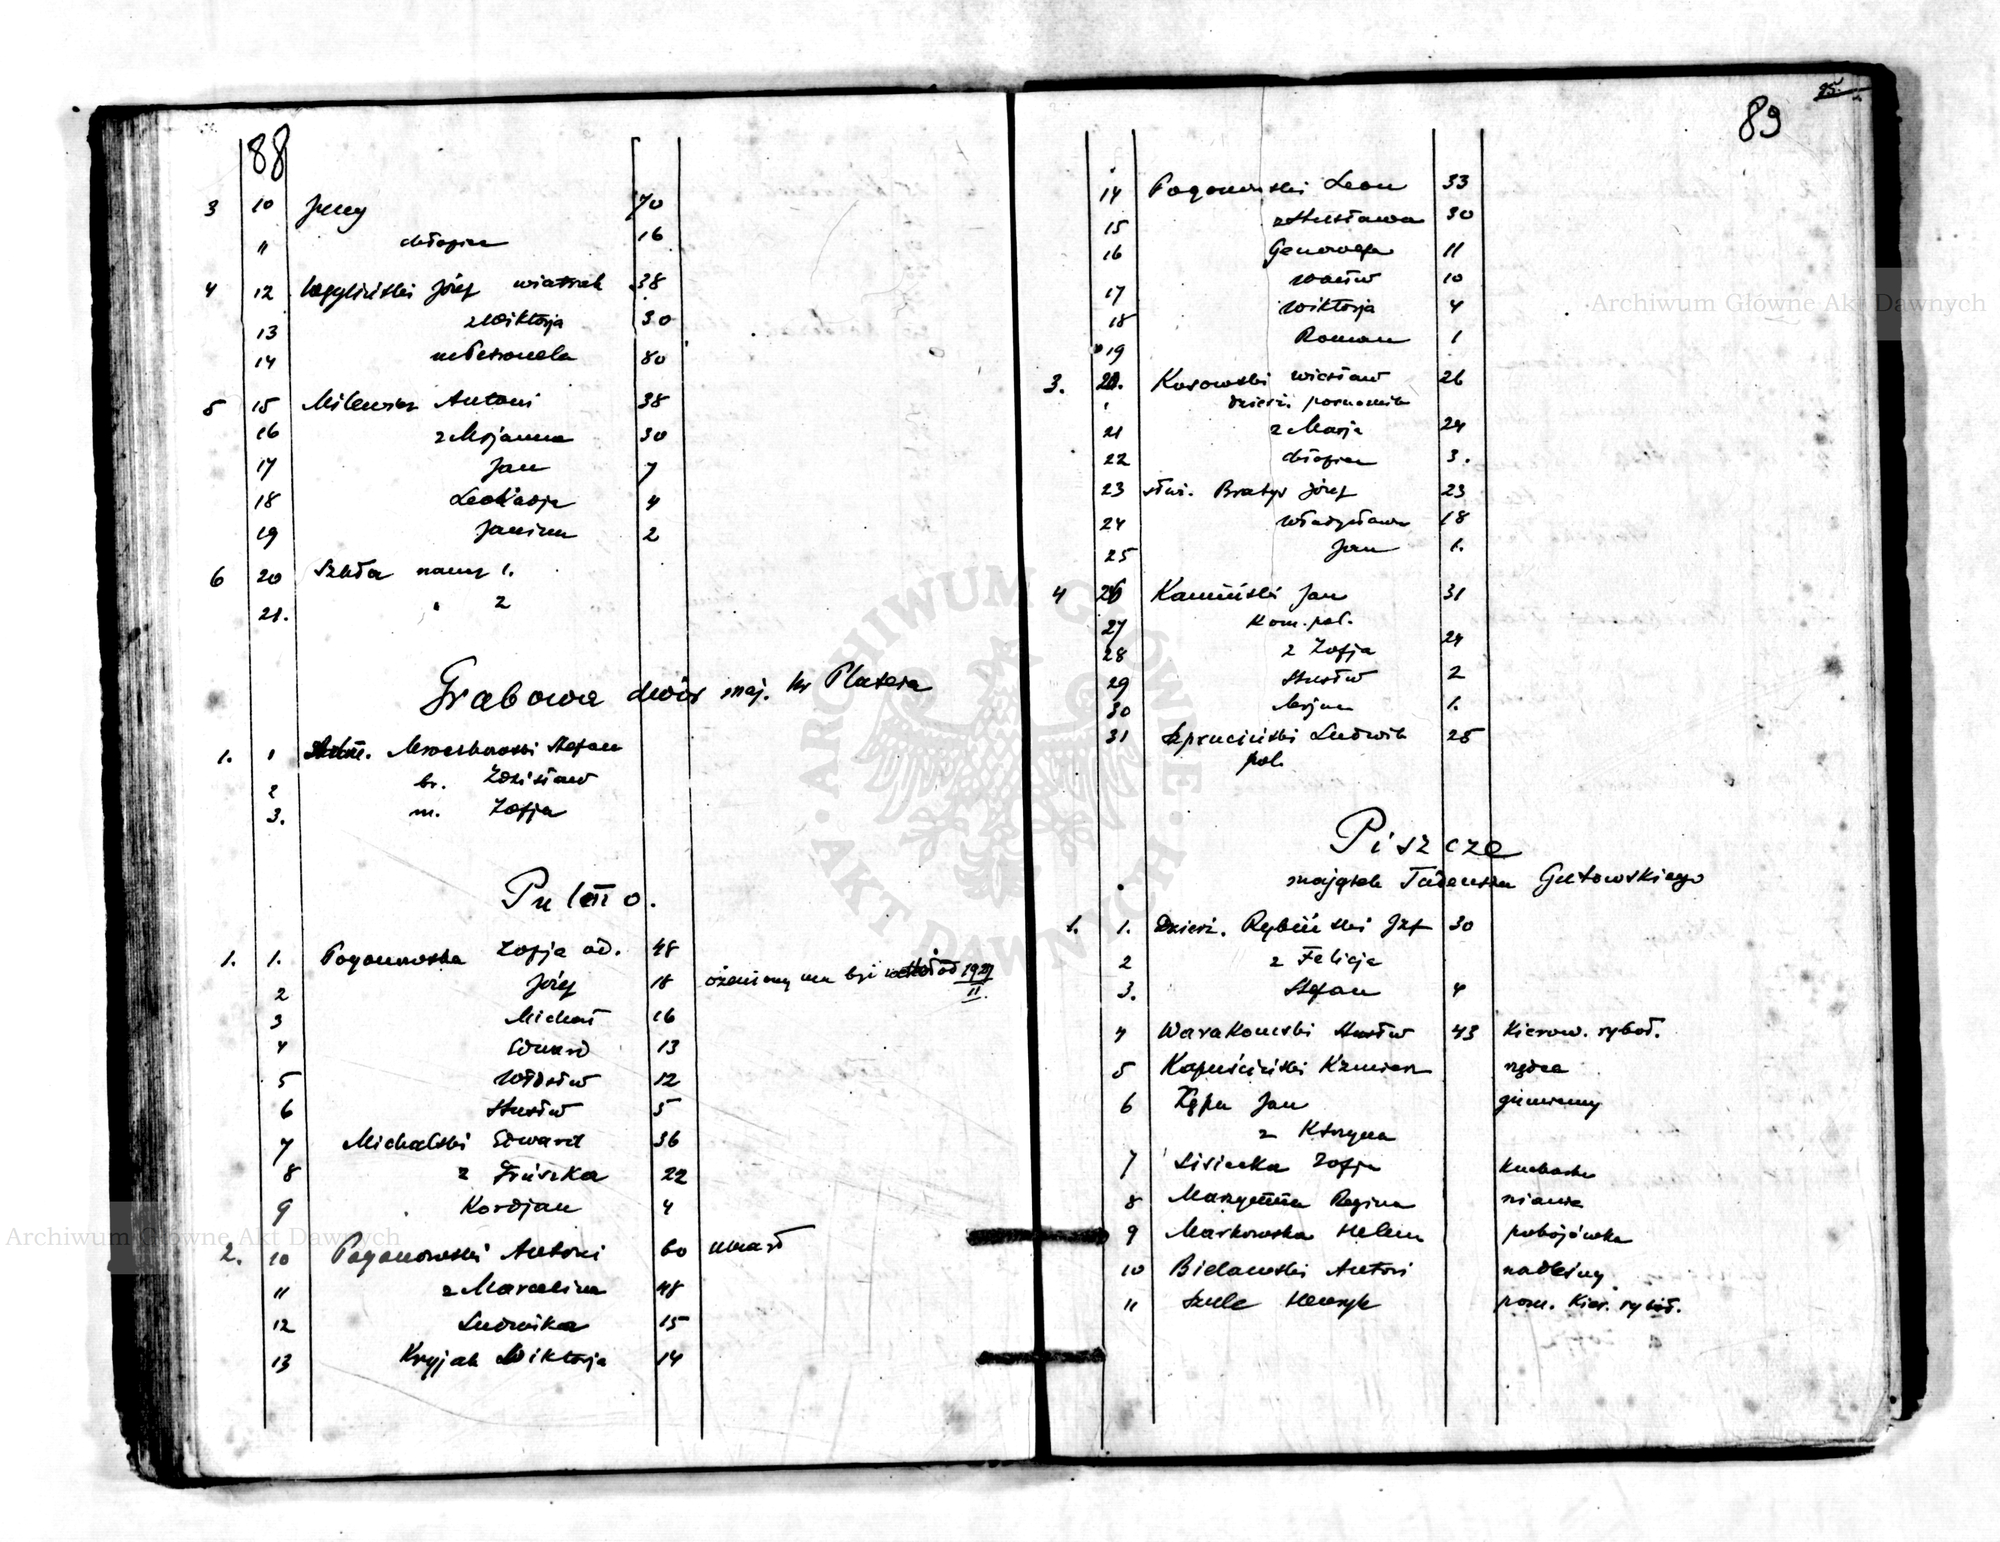 88
3 10 Jerzy 70
11 chłopiec 16
4 12 Józef wiatrak 38
13 z Wiktorja 30
14 m Petronela 80
5 15 Milewicz Antoni 38
16 z Marjanna 30
17 Jan 7
18 Leokadja 4
19 Janina 2
6 20 Szkoła naucz 1.
21. " 2
Grabowa dwór maj. hr Platera
1. 1 Mroczkowski Stefan
2 br. Zdzisław
3. m. Zofja
Pulemo.
1. 1. Pogonowska Zofja 48
2 Józef 18 ożeniony ma być od 1929 II.
3 Michał 16
4 Edward 13
5 Włdsław 12
6 Stnsław 5
7 Michalski Edward 36
8 z Frúszka 22
9 Kordjan 4
2. 10 Pogonowski Antoni 60 umarł
11 z Marcelina 48
12 Ludwika 15
13 Wiktorja 14
85.
89
14 Pogonowski Leon 33
15 z Stnsława 30
16 Genowefa 11
17 Wacław 10
18 Wiktorja 4
19 Roman 1
3. 20. Kosowski Wiesław 26
21 z Marja 24
22 chłopiec 3.
23 Bratyś Józef 23
24 Władysława 18
25 Jan 1.
4 26 Kamiński Jan 31
27 Kom. pol.
28 z Zofja 24
29 Stnsław 2
30 Mrjan 1.
31 Szpruciński Ludwik 25
pol.
Piszcze
majątek Tadeusza Gutowskiego
1. 1. Dzierż. Rybiński Jzf 30
2 z Felicja
3. Stefan 4
4 Warakomski Stnsław 43 Kierow. ryboł.
5 Kapuściński Kzmierz rządca
6 Kępa Jan gumienny
z Ktrzyna
7 Lisiecka Zofja kucharka
8 Regina niania
9 Markowska Helena pokojówka
10 Bielawski Antoni nadleśny
11 Szulc Henryk pom. Kier. ryboł.
ARCHIWUM GŁÓWNE · AKT DAWNYCH ·
Archiwum Główne Akt Dawnych
Archiwum Główne Akt Dawnych